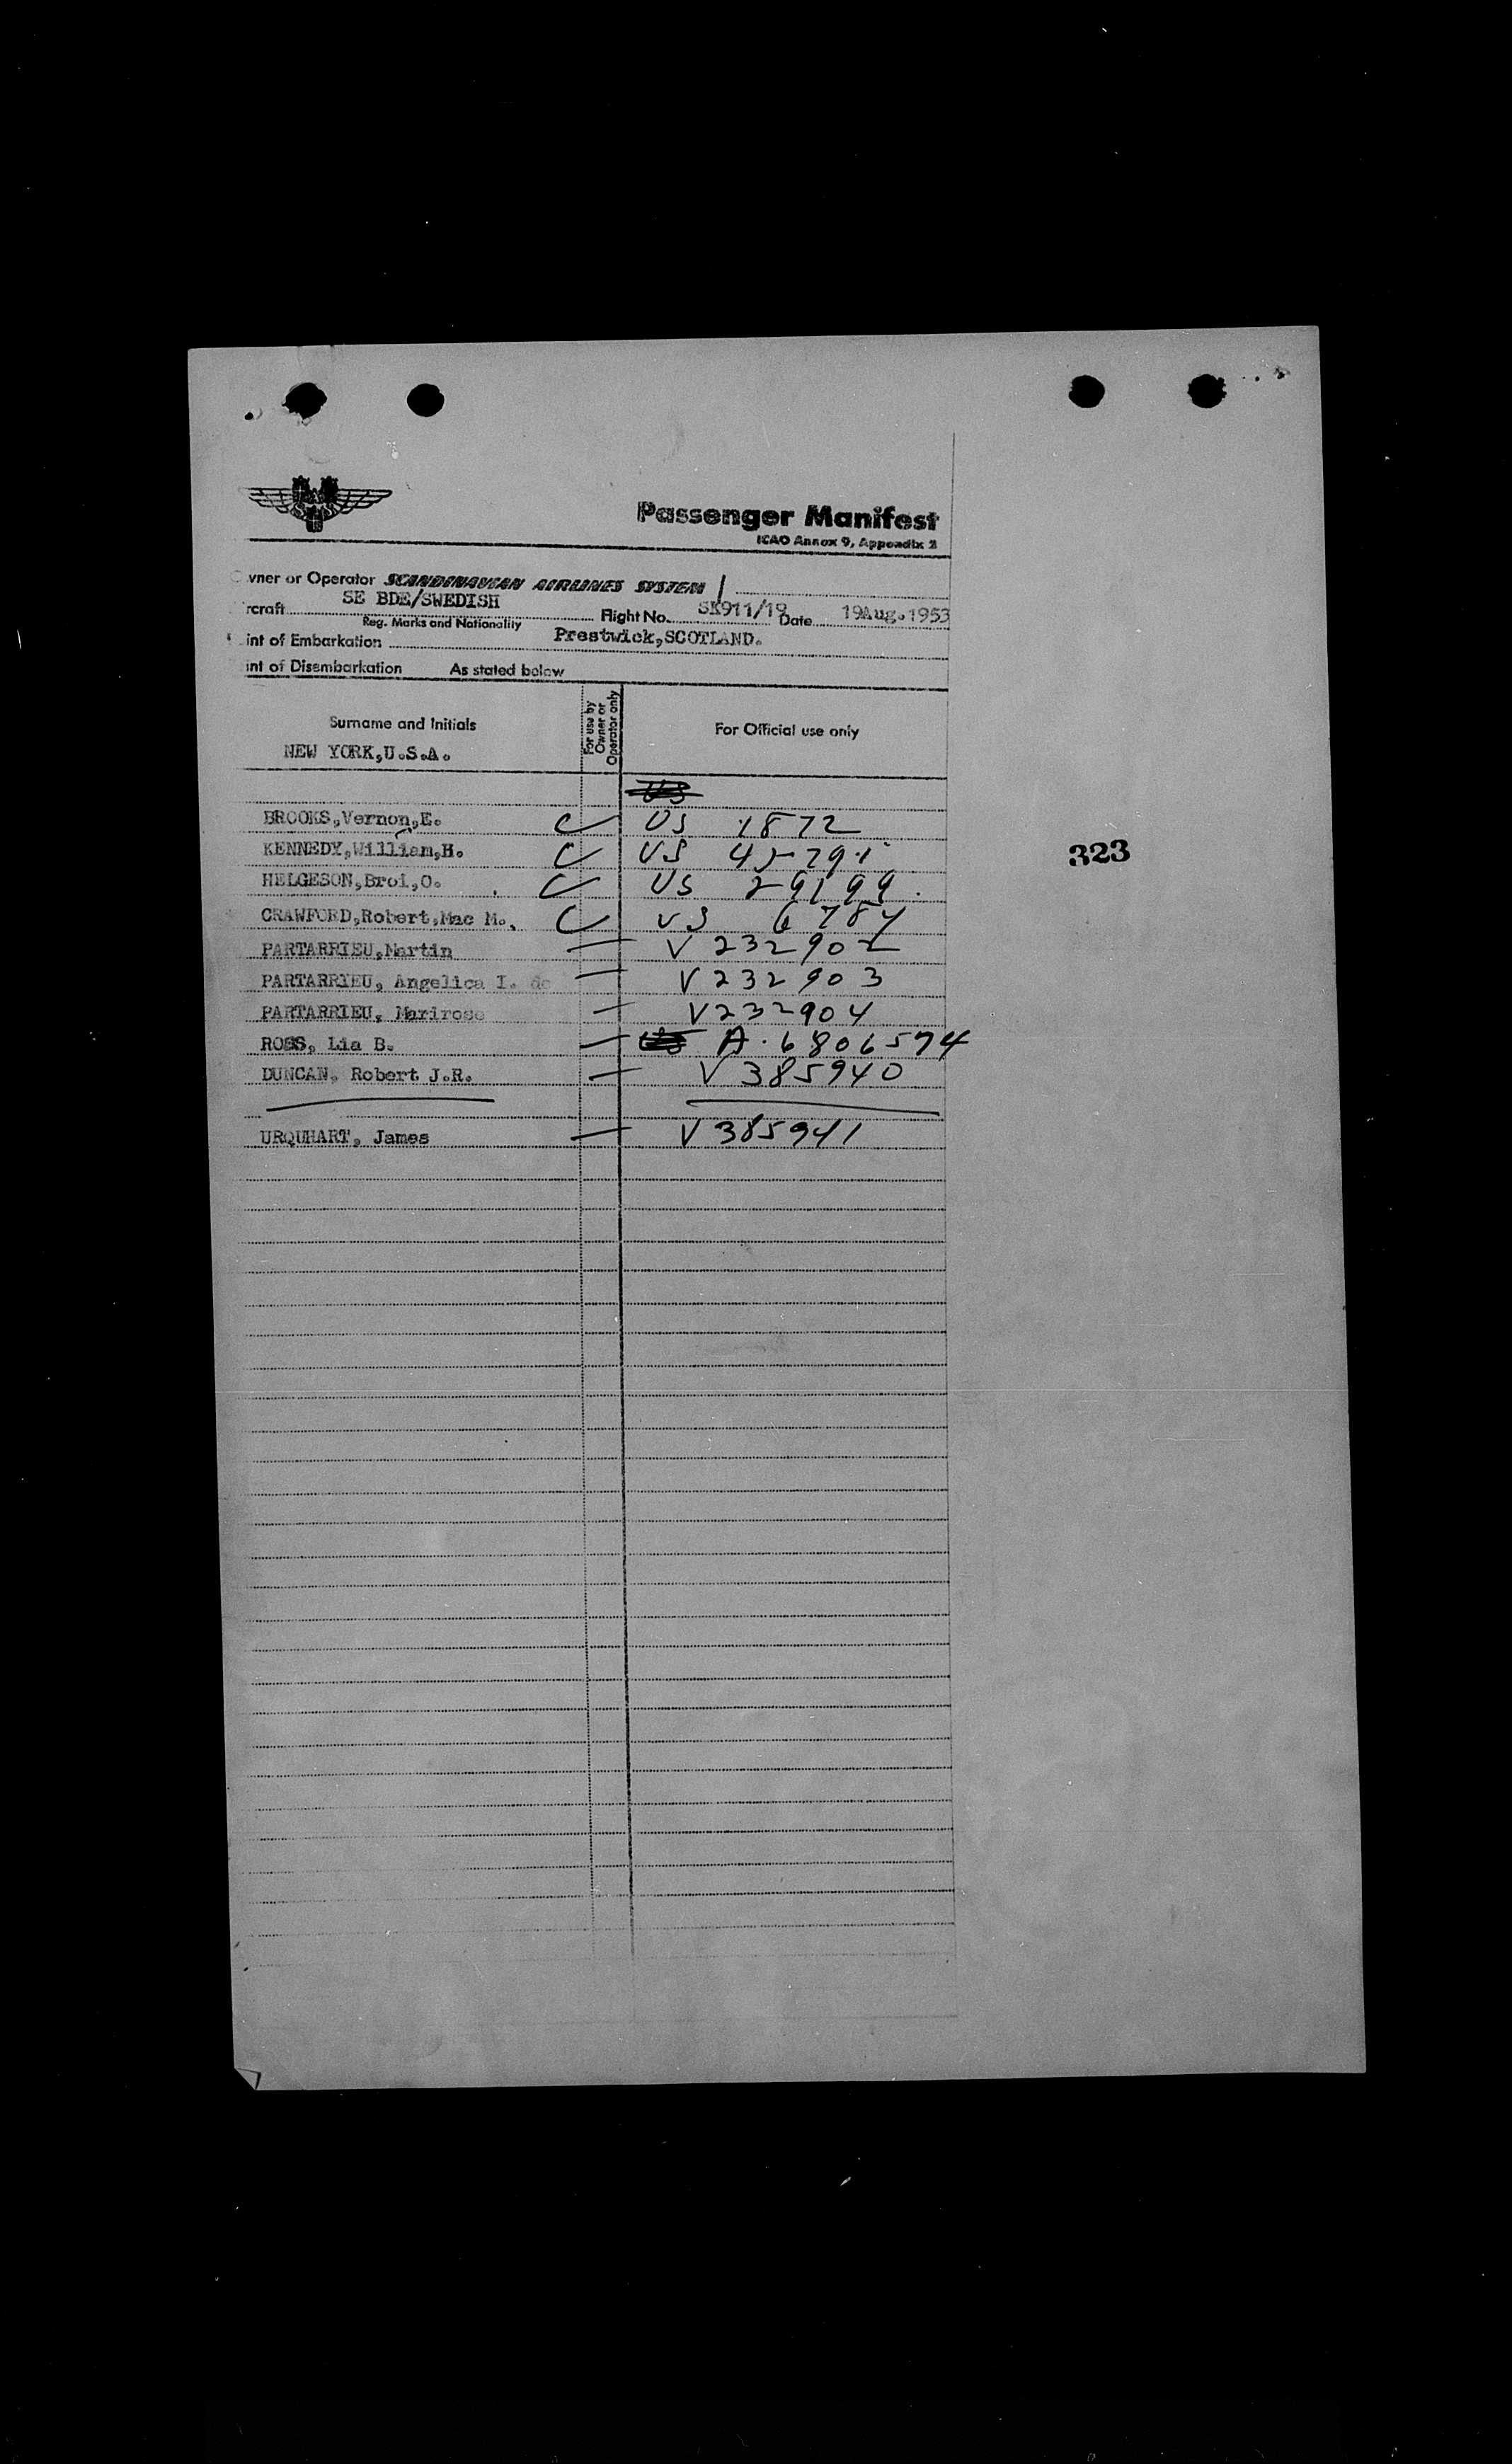 Passenger Manifest
ICAO Annex 9, Appendix 2
wner or Operator SCANDINAVIAN AIRLINES SYSTEM
rcraft SE BDE/SWEDISH Flight No. SK911/19 Date 19Aug.1953
Reg. Marks and Nationality
int of Embarkation Prestwick,SCOTLAND.
int of Disembarkation As stated below
Surname and Initials For use by Owner or Operator only For Official use only
NEW YORK,U.S.A.
BROOKS,Vernon,E. C US 1872
KENNEDY,William,H. C US
HELGESON,Broi,O. C US 29199
CRAWFORD,Robert,Mac M. C US 6784
PARTARRIEU,Martin — V 232902
PARTARRIEU, Angelica I. de — V 232903
PARTARRIEU, Marirose — V232904
ROSS, Lia B. — A.6806574
DUNCAN. Robert J.R. — V 385940
URQUHART, James — V385941
323